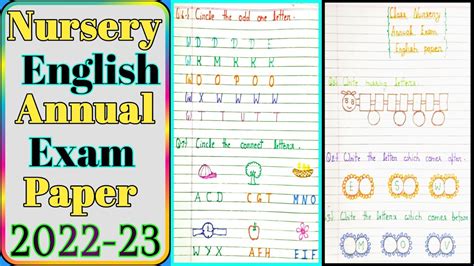 Nursery
English
Annual
Exam
Paper
2022-23
Circle the odd one letter.
O O P O O
W X W W W
Circle the correct letters.
A C D C G T M N O
W Y X A F H E I F
Class Nursery
Annual Exam
English paper
Write missing letters.
Write the letter which comes after.
E S W
Write the letters which comes before
M O V